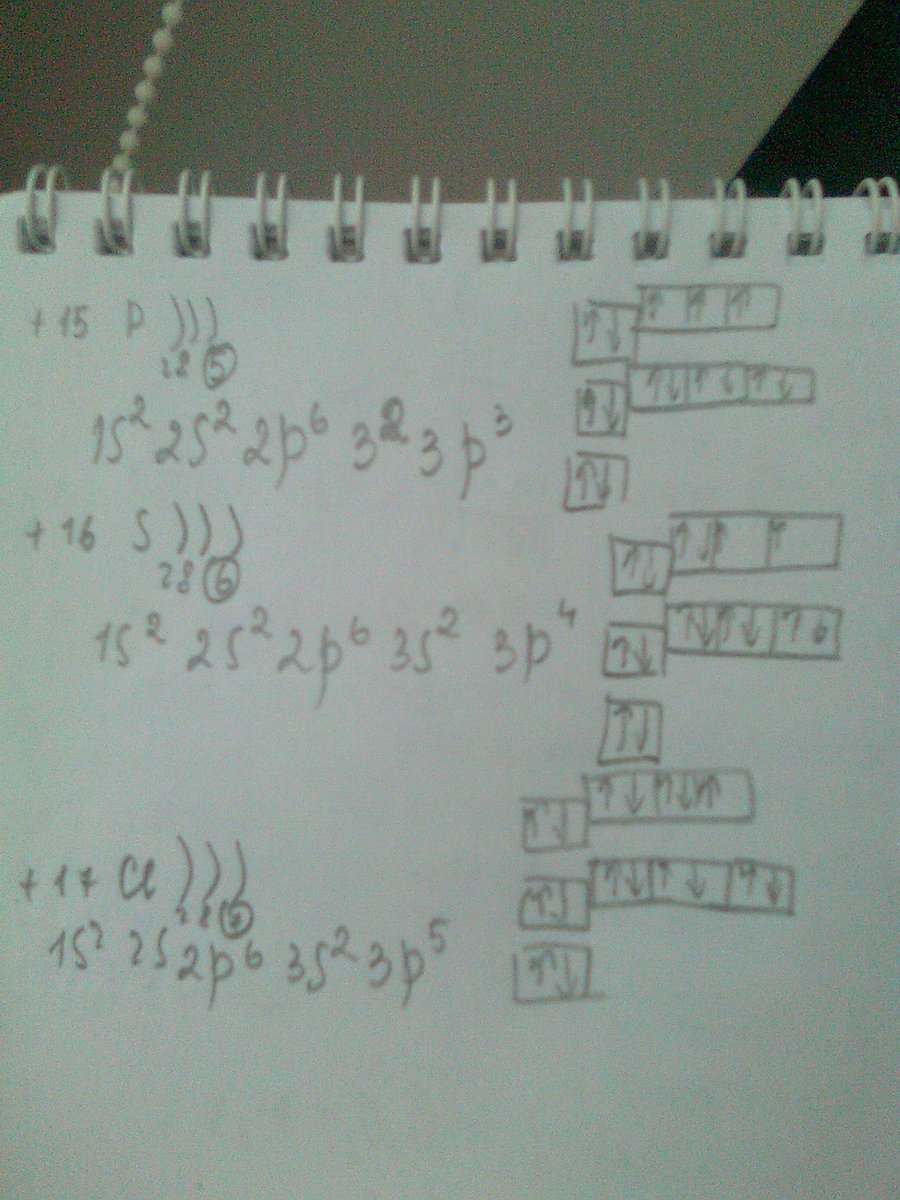 +15 P )))
2 8 5
1s² 2s² 2p⁶ 3² 3p³
+16 S )))
2 8 6
1s² 2s² 2p⁶ 3s² 3p⁴
+17 Cl )))
2 8 7
1s² 2s 2p⁶ 3s² 3p⁵